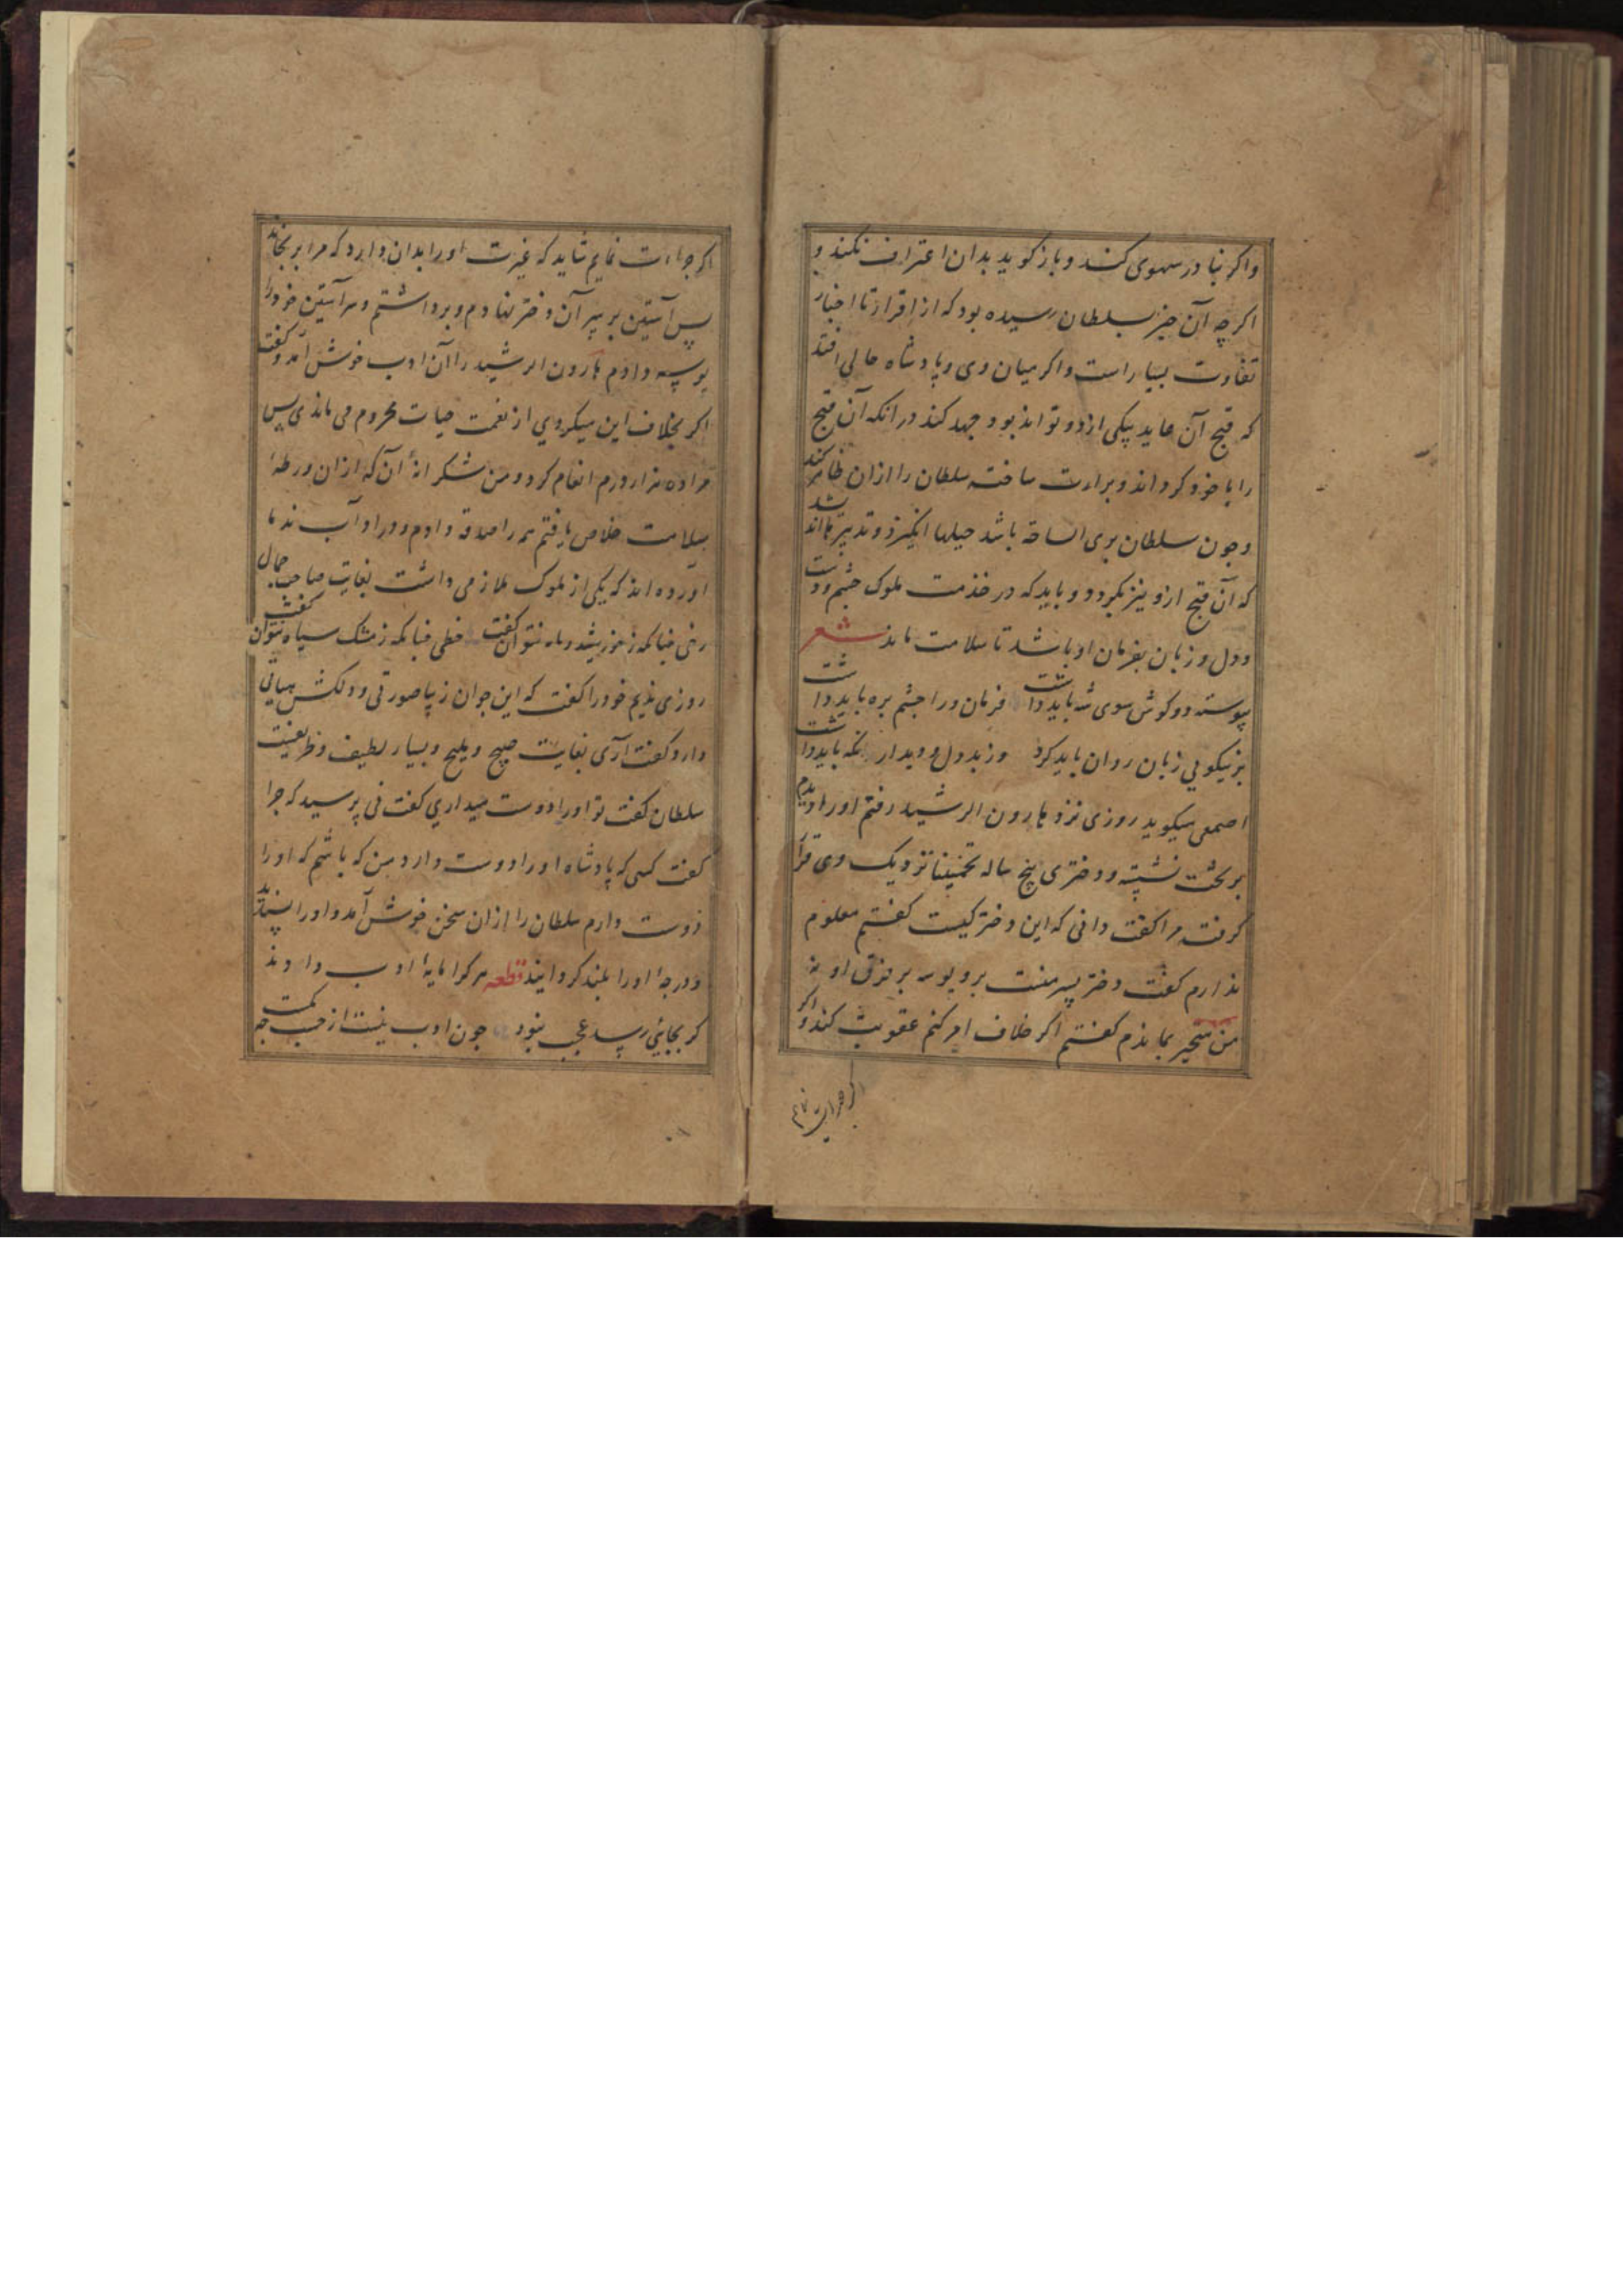 واکر بنا در سهوی کند و باز کوید بدان اعتراف نکند و
اکر چه آن خبر بسلطان رسیده بود که از اقرار تا اخبار
تفاوت بسیار است واکر میان وی و پادشاه حالی افتد
که قبح آن عاید بیکی ازدو تواند بود جهد کند در انکه آن قبح
را با خود کرداند و براءت ساخت سلطان را ازان ظاهر کند
وچون سلطان بری الساحة باشد حیلها انکیزد و تدبیر
که آن قبح ازو نیز بکردد و باید که در خدمت ملوک چشم ودست
ودل و زبان بفرمان او باشد تا سلامت ماند شعر
پیوسته دو کوش سوی شه باید داشت فرمان ورا چشم بره باید داشت
بر نیکویی زبان روان باید کرد وز بد دل و دیدار نکه باید داشت
اصمعی میکوید روزی نزد هارون الرشید رفتم اورا دیدم
بر تخت نشسته و دختری پنج ساله تخمینا نزدیک وی قرار
کرفته مرا کفت دانی که این دختر کیست کفتم معلوم
ندارم کفت دختر پسر منست برو بوسه بر فرق او نه
من متحیر بماندم کفتم اکر خلاف امر کنم عقوبت کند واکر
اکر جراءت نمایم
اکر جراءت نمایم شاید که غیرت اورا بدان دارد که مرا برنجاند
پس آستین بر سر آن دختر نهادم و برداشتم و سر آستین خود را
بوسه دادم هارون الرشید را آن ادب خوش آمد و کفت
اکر بخلاف این میکردی از نعمت حیات محروم می ماندی پس
مرا ده هزار درم انعام کرد و من شکرانهٔ آن که ازان ورطه
بسلامت خلاص یافتم همه را صدقه دادم و در آداب ندما
آورده اند که یکی از ملوک ملازمی داشت بغایت صاحب جمال
رخی چنانکه ز خورشید و ماه نتوان کفت خطی چنانکه ز مشک سیاه نتوان کفت
روزی ندیم خود را کفت که این جوان زیبا صورتی و دلکش هیاتی
دارد کفت آری بغایت صبیح و ملیح و بسیار لطیف و ظریفست
سلطان کفت تو اورا دوست میداری کفت نی پرسید که چرا
کفت کسی که پادشاه اورا دوست دارد من که باشم که اورا
دوست دارم سلطان را ازان سخن خوش آمد و اورا
ودرجهٔ اورا بلند کردانید قطعه هر کرا مایهٔ ادب دادند
کر بجایی رسد عجب نبود چون ادب نیست از حسب چه